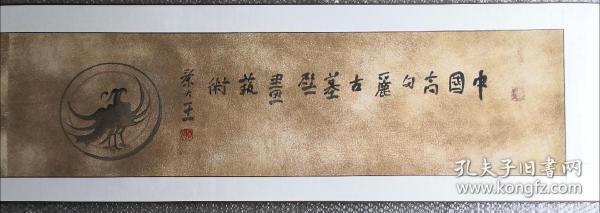 中國高句麗古墓壁畫藝術
孔夫子旧书网
www.kongfz.com